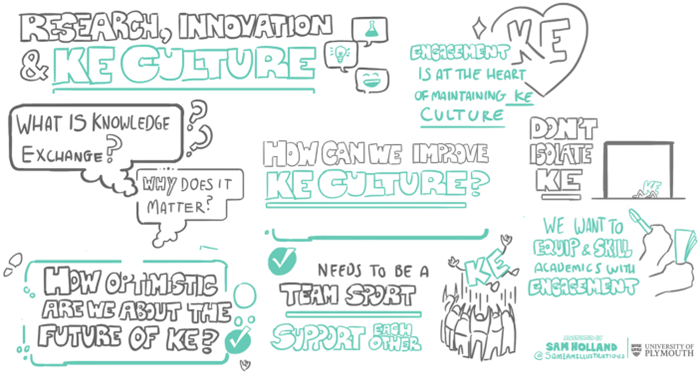 RESEARCH, INNOVATION
& KE CULTURE
ENGAGEMENT
KE
IS AT THE HEART
OF MAINTAINING KE
CULTURE
WHAT IS KNOWLEDGE
EXCHANGE?
??
WHY DOES IT
MATTER?
HOW CAN WE IMPROVE
KE CULTURE?
DON'T
ISOLATE
KE
KE
WE WANT TO
EQUIP & SKILL
ACADEMICS WITH
ENGAGEMENT
HOW OPTIMISTIC
ARE WE ABOUT THE
FUTURE OF KE?
NEEDS TO BE A
TEAM SPORT
SUPPORT EACH
OTHER
KE
SAM HOLLAND
@SAMIAMILLUSTRATIONS
UNIVERSITY OF
PLYMOUTH